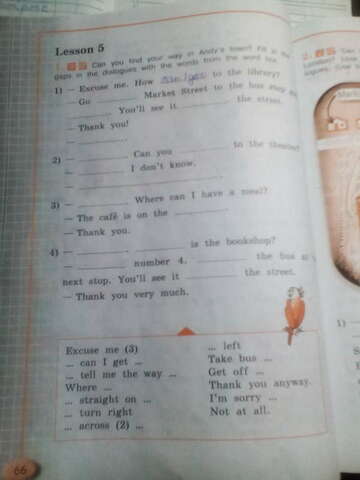 Lesson 5
1. Can you find your way in Andy's town? Fill in the
gaps in the dialogues with the words from the word box.
1) — Excuse me. How can I get to the library?
— Go ______ Market Street to the bus stop and
______. You'll see it ______ the street.
— Thank you!
— ______.
2) — ______. Can you ______ to the theatre?
— ______ I don't know.
— ______.
3) — ______. Where can I have a meal?
— The café is on the ______
— Thank you.
4) — ______. ______ is the bookshop?
— ______ number 4. ______ the bus at
next stop. You'll see it ______ the street.
— Thank you very much.
Excuse me (3)
... can I get ...
... tell me the way ...
Where ...
... straight on ...
... turn right
... across (2) ...
... left
Take bus ...
Get off ...
Thank you anyway.
I'm sorry ...
Not at all.
66
2.
1)